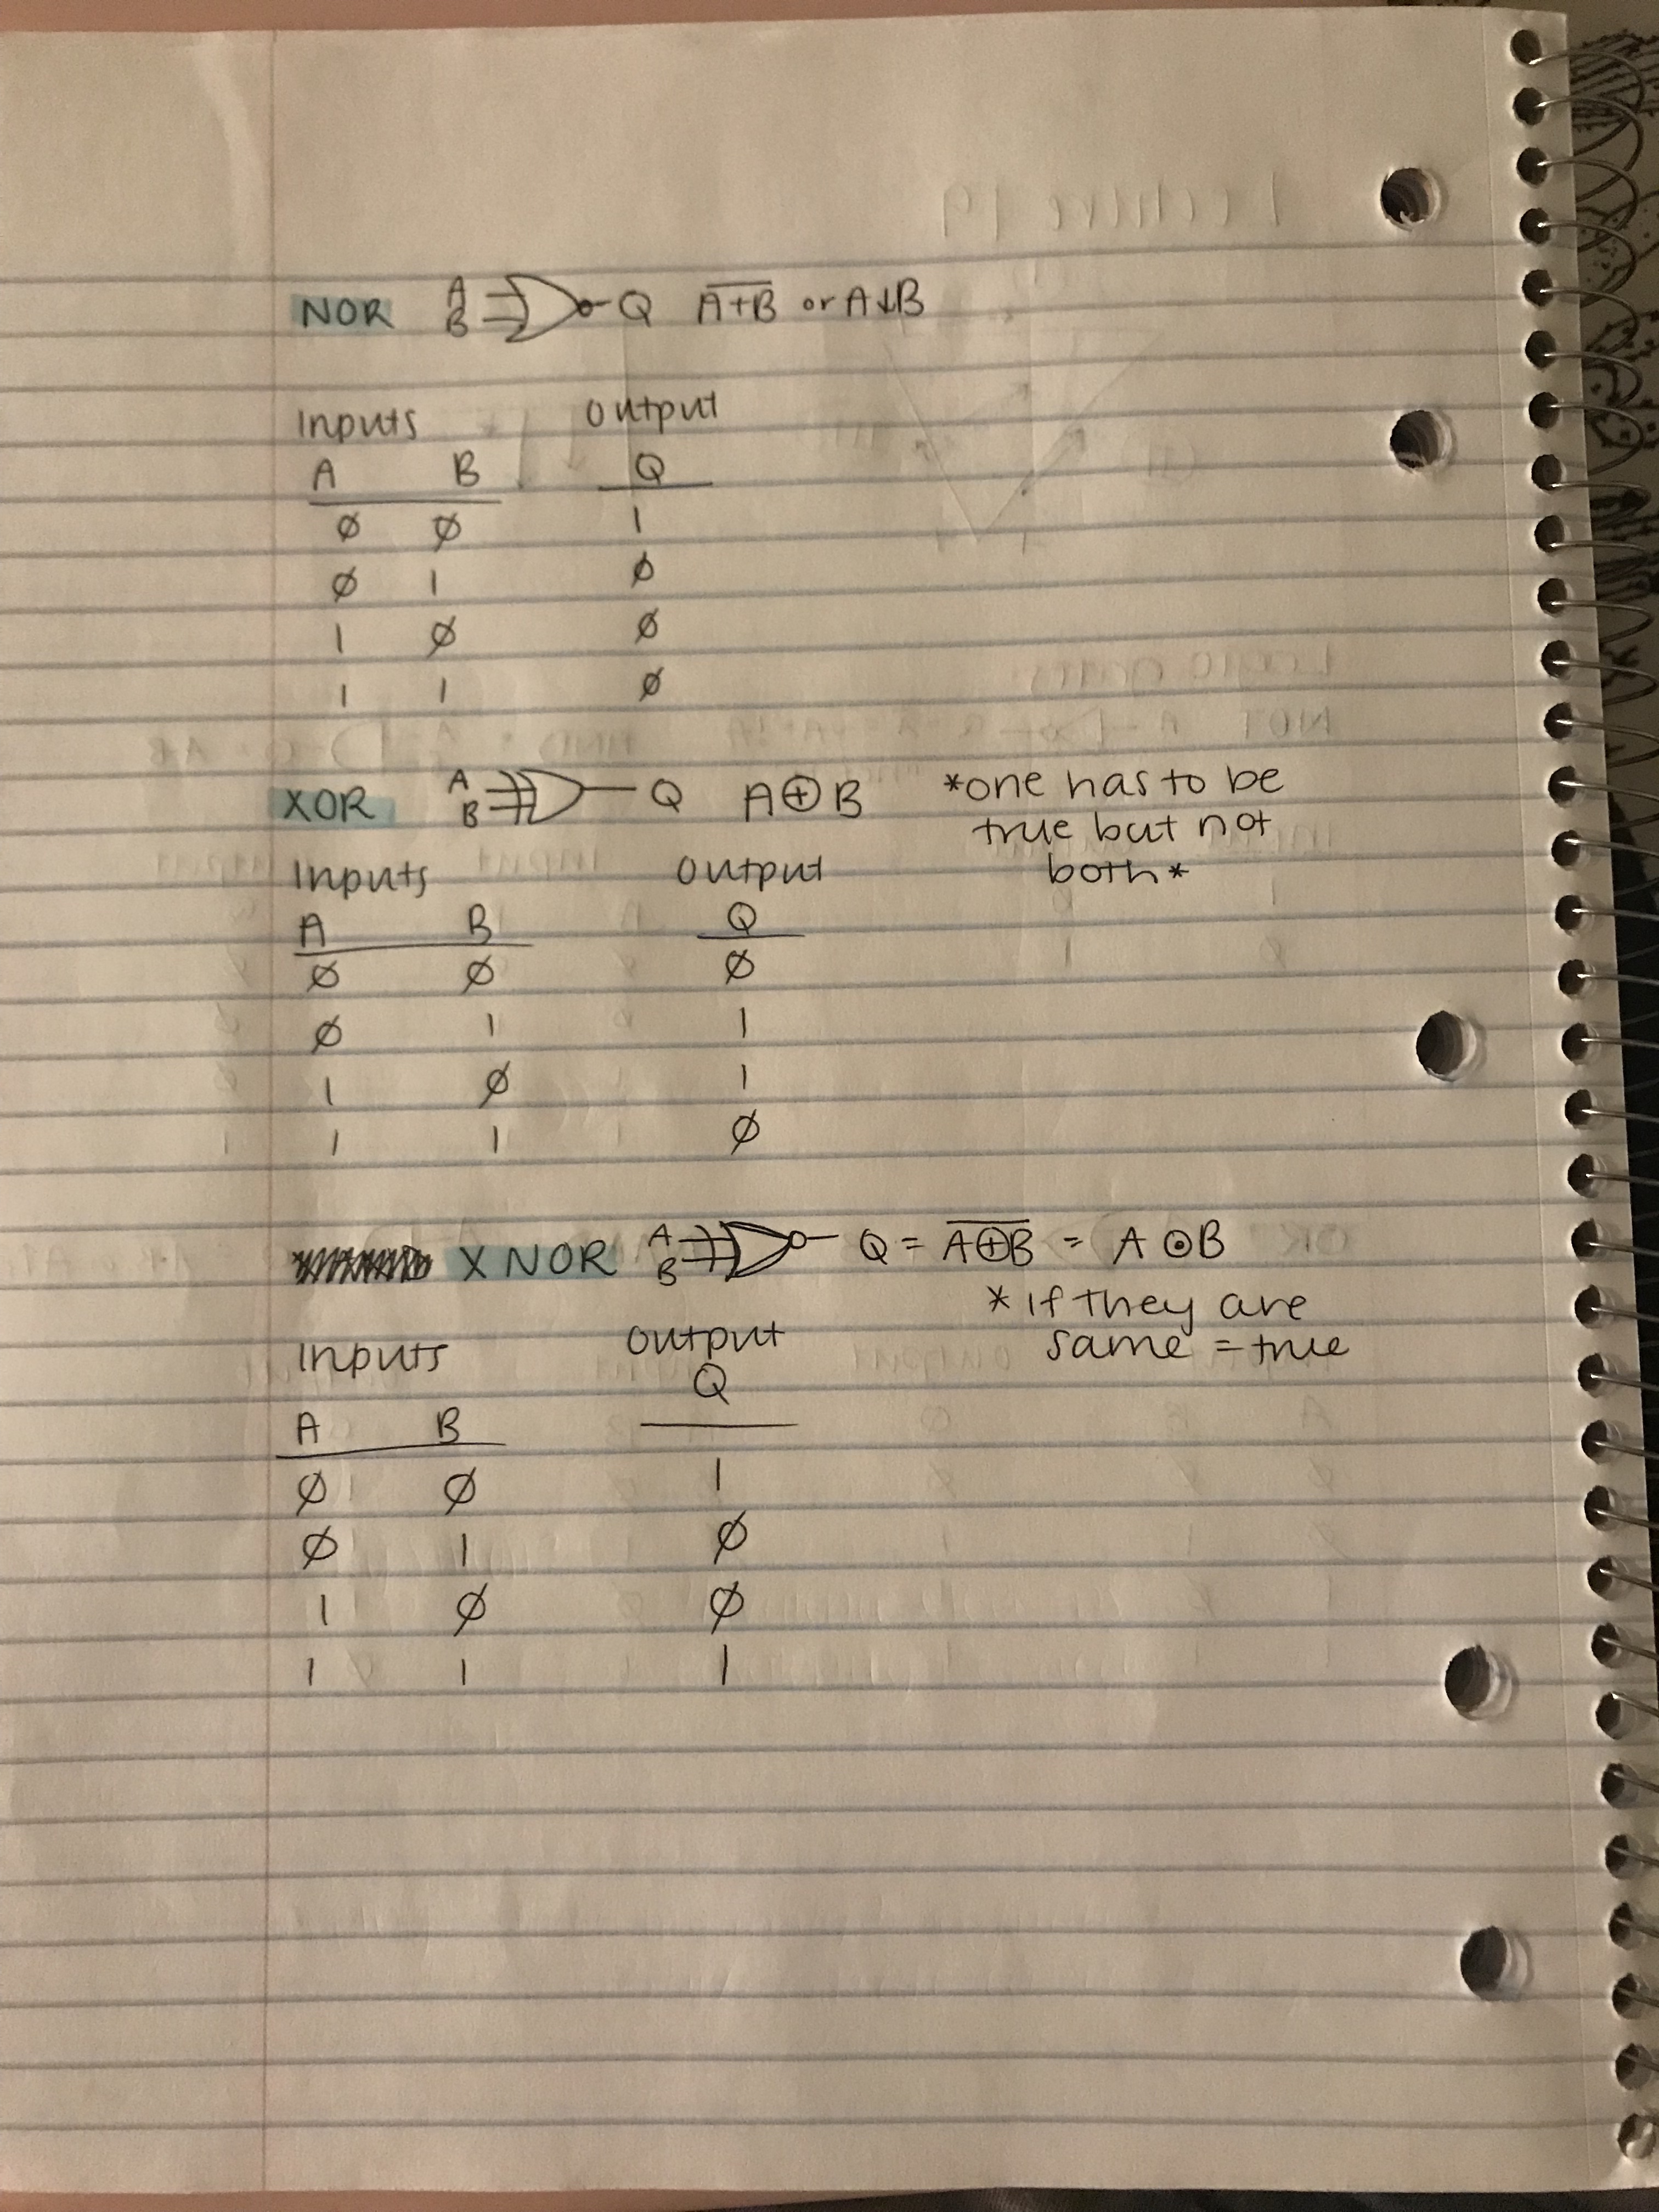 NOR A B Q A+B or A↓B
Inputs Output
A B Q
Ø Ø 1
Ø 1 Ø
1 Ø Ø
1 1 Ø
XOR A B Q A⊕B *one has to be
true but not
both*
Inputs Output
A B Q
Ø Ø Ø
Ø 1 1
1 Ø 1
1 1 Ø
XNOR A B Q = A⊕B = A⊙B
*if they are
same = true
Inputs Output
Q
A B
Ø Ø 1
Ø 1 Ø
1 Ø Ø
1 1 1